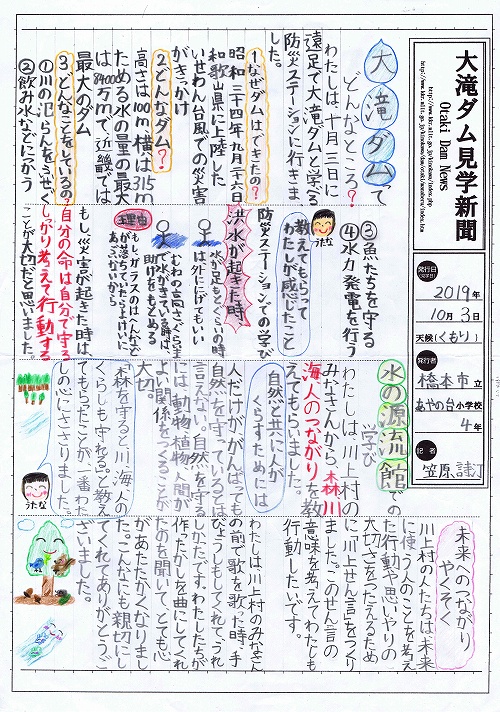 大滝ダム見学新聞
Otaki Dam News
発行日
2019年
10月3日
天候（くもり）
発行者
橋本市立
あやの台小学校
4年
記者
大滝ダムって
どんなところ？
わたしは、十月三日に
遠足で大滝ダムと学べる
防災ステーションに行きま
した。
1.なぜダムはできたの？
昭和三十四年九月二十六日
和歌山県に上陸した
いせわん台風での災害
がきっかけ
2.どんなダム？
高さは100m横は315m
ためる水の量の最大
は8400万mで近畿では
最大のダム
3.どんなことをしているの？
①川の氾らんをふせぐ
②飲み水などにつかう
③魚たちを守る
④水力発電を行う
教えてもらって
わたしが感じたこと
うたな
防災ステーションでの学び
洪水が起きた時
水が足もとぐらいの時
は外ににげてもいい
むねの高さぐらいま
で水がきている時は、
助けをもとめる
理由
もし、ガラスのはへんなど
が落ちていたらよけいに
あぶないから
もし、災害が起きた時は、
自分の命は自分で守る
しっかり考えて行動する
ことが大切だと思いました。
水の源流館での
学び
わたしは、川上村の
みなさんから、森川
海人のつながりを教
えてもらいました。
自然と共に人が
くらすためには
人だけががんばっても
自然を守っているとは
言えない。自然を守る
には、動物、植物、人間が
よい関係をつくることが
大切。
「森を守ると川、海、人の
くらしも守れる」と教え
てもらったことが一番わた
しの心にささりました。
うたな
未来へのつながり
やくそく
川上村の人たちは、未来
に使う人のことを考え
た行動や思いやりの
大切さをつたえるため
に「川上せん言」をつくり
ました。このせん言の
意味を考えてわたしも
行動したいです。
わたしは、川上村のみなさん
の前で歌を歌った時、手
びょうしもしてくれて、うれ
しかたです。わたしたちが
作たかしを曲にしてくれ
たのを聞いて、とても心
があたたかくなりまし
た。こんなにも親切にし
てくれてありがとうご
ざいました。